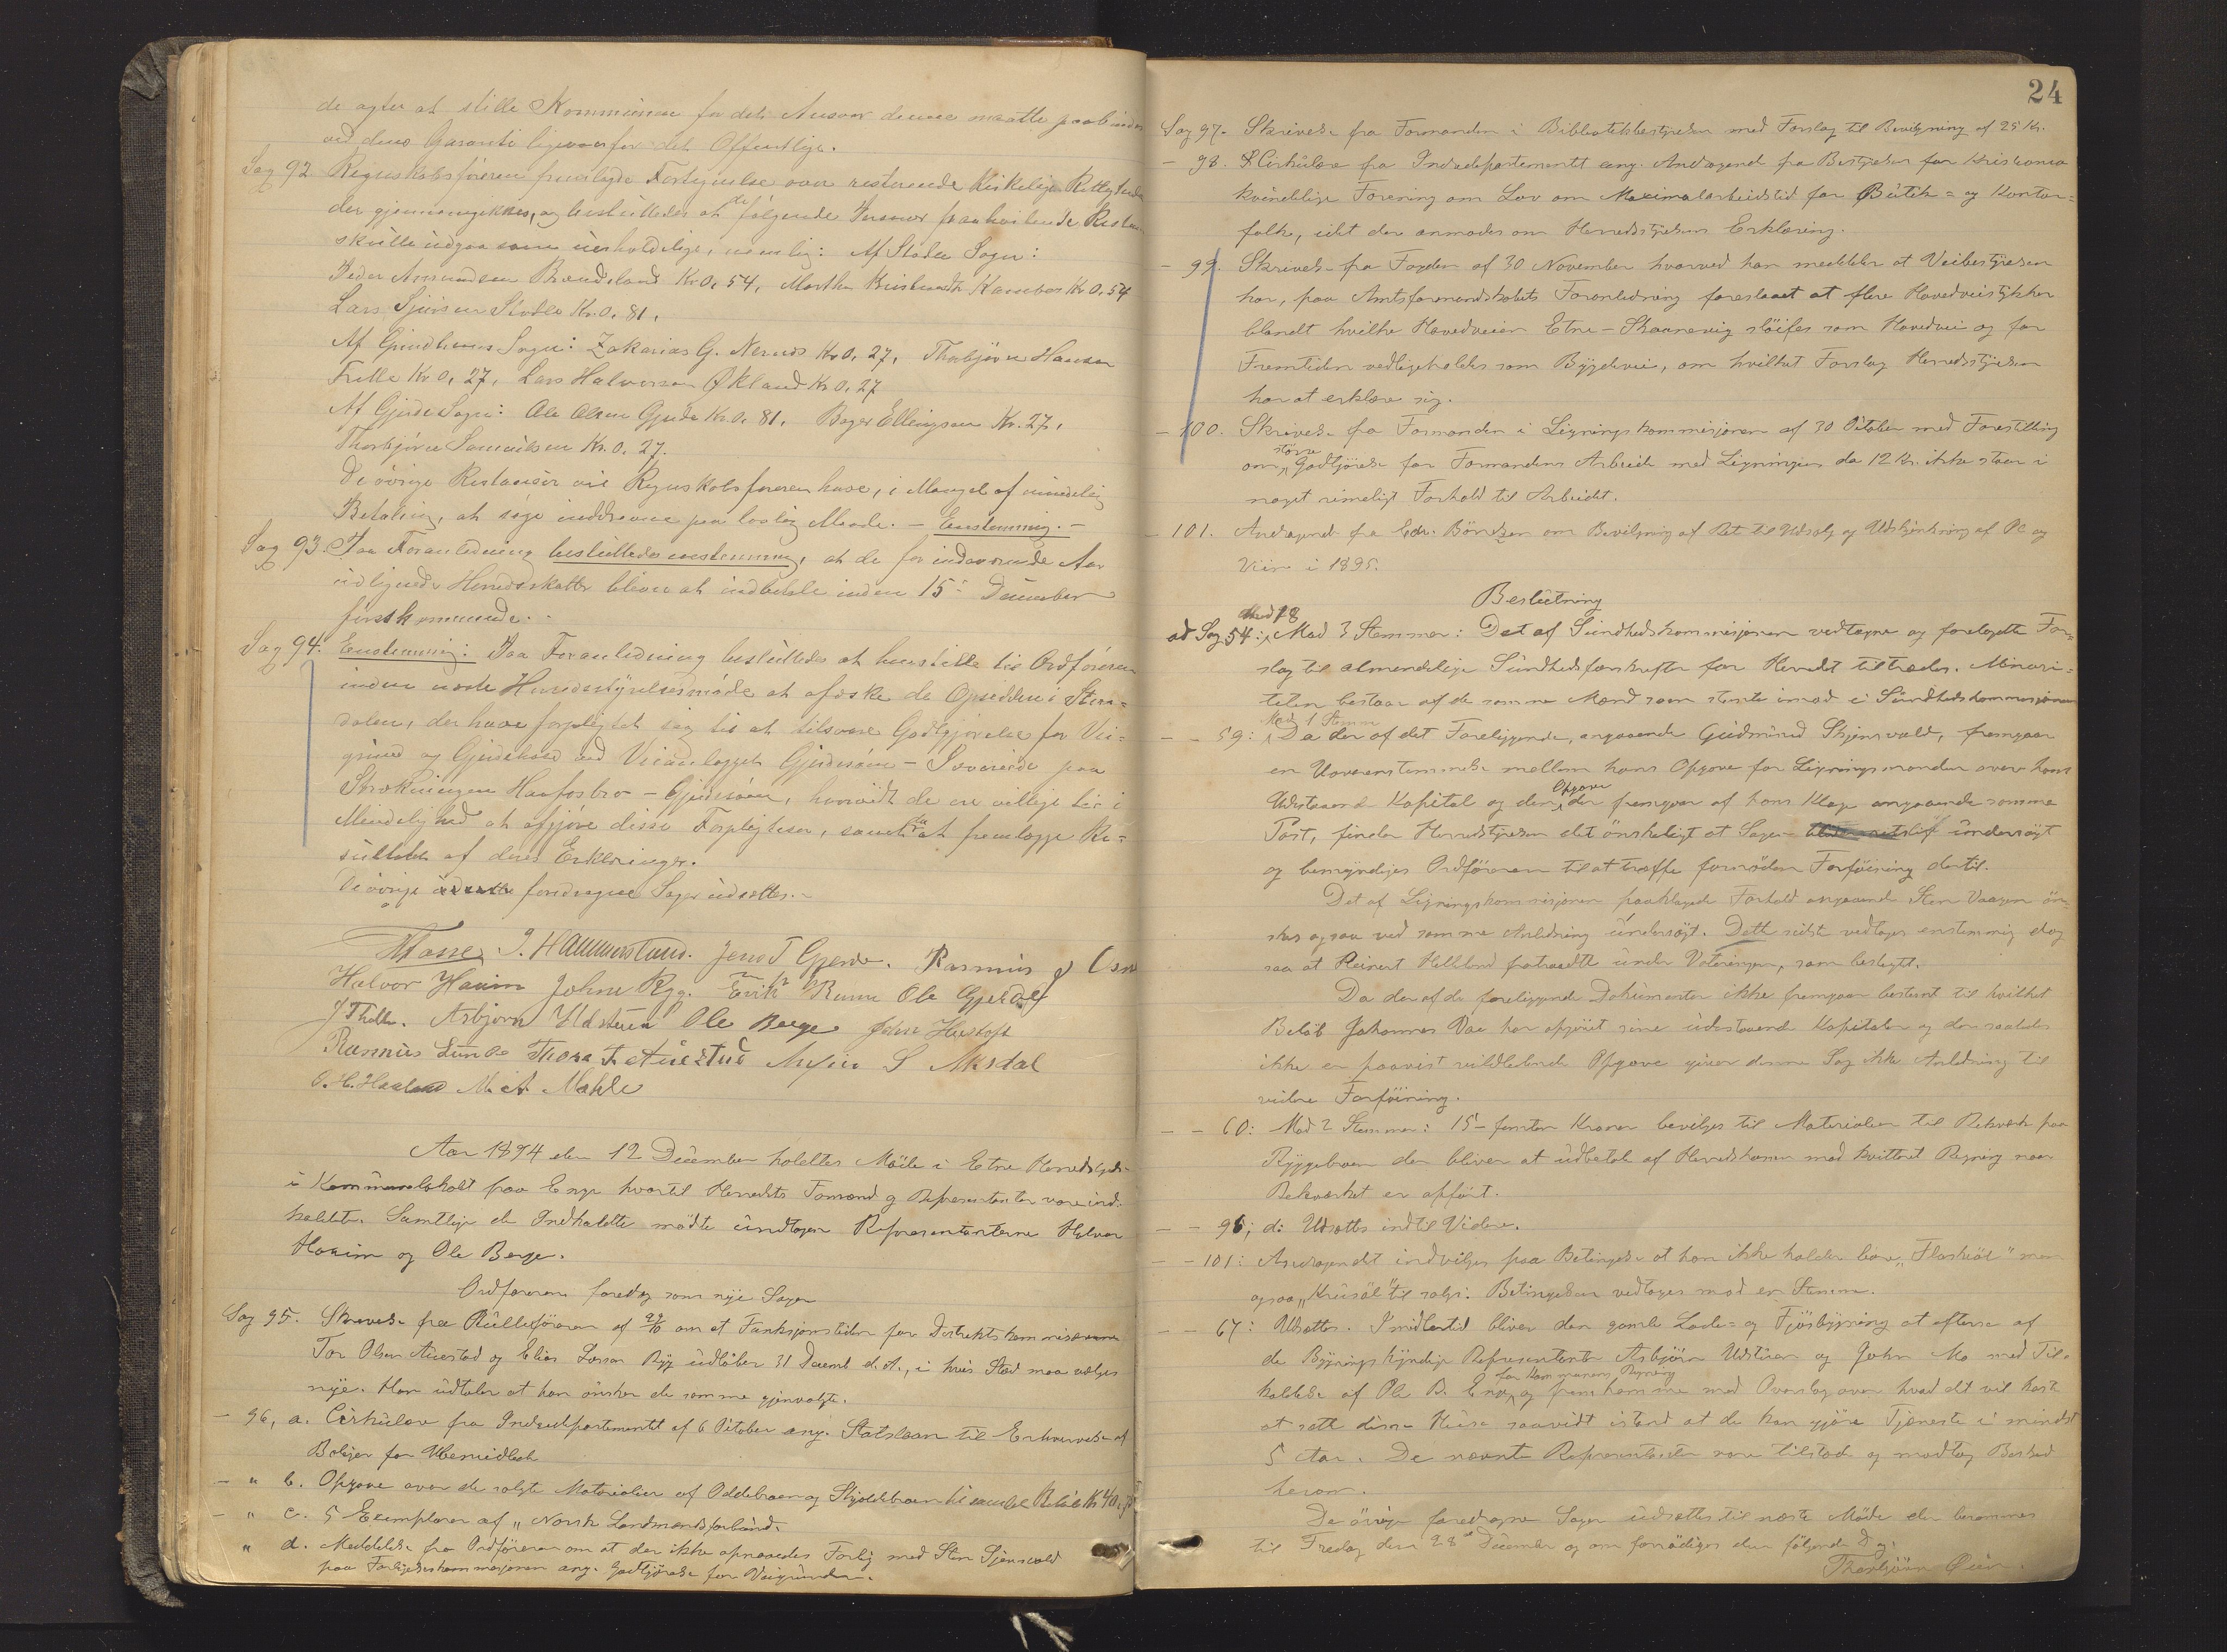 de agter at stille Kommunen for det Ansvar denne maatte paabindes
ved dens Garanti ligeoverfor det Offentlige.
Sag 92 Regnskabsføreren fremlagde Fortegnelse over resterende Kirkelige Rettigheder
der gjennemgikkes, og besluttedes at de følgende Personer paahvilende Restan
skulle udgaa som uerholdelige, nemlig: Af Stødle Sogn:
Peder Amundsen Kr. 0,54, Martha Kambo Kr 0,54
Lars Sjursen Stødle Kr. 0,81.
Af Grindheims Sogn: Zakarias G. Kr 0,27, Thorbjörn Hansen
Frette Kr 0,27, Lars Halvorsen Økland Kr 0,27
Af Gjerde Sogn: Ole Olsen Gjerde Kr. 0,81, Ellingsen Kr. 27,
Thorbjörn Samuelsen Kr. 0,27.
De övrige Restancer vil Regnskabsføreren have, i Mangel af mindelig
Betaling, at söge inddrevne paa lovlig Maade. – Enstemmig. –
Sag 93. Paa Foranledning besluttedes enstemmig, at de for indeværende Aar
udlignede Herredsskatter bliver at indbetale inden 15de December
førstkommende. –
Sag 94. Enstemmig: Paa Foranledning besluttedes at henstille til Ordføreren
inden næste Herredsstyrelsesmøde at afæske de Opsiddere i Stor=
dalen, der have forpligtet sig til at tilsvare Godtgjørelse for Vei=
grund og Gjerdehold ved Veianlægget – paa
Strækningen Haafosbro – , hvorvidt de ere villige til i
Mindelighed at afgjøre disse Forpligtelser, samt at fremlægge Re=
sultatet af deres Erklæringer.
De övrige foredragne Sager udsættes. –
Fosse J. Hammersland. Jens T Gjerde. Rasmus J
Halvor Haaim Johne Ryg. Erik Runn Ole Gjerde
J Thelle. Asbjørn Udsteen Ole Berge John
Rasmus Lunde Thore T. Austad S Mksdal
O. H. Haaland M. A. Mæhle
Aar 1894 den 12 December holdtes Møde i Etne Herredsstyrelse
i Kommunelokalet paa Enge hvortil Herredets Formænd og Repræsentanter vare ind=
kaldte. Samtlige de Indkaldte mødte undtagen Repræsentanterne Halvor
Haaim og Ole Berge.
Ordføreren foredrog som nye Sager
Sag 95. Skrivelse fra Rulleföreren af om at Funksjonstiden for Distriktskommissærerne
Tor Olsen Austad og Elias Larsen Ryg udløber 31 Decemb d. A., i hvis Sted maa vælges
nye. Han udtaler at han ønsker de samme gjenvalgte.
– 96, a. Cirkulære fra Indredepartementet af 6 Oktober ang. Statslaan til Erhvervelse af
Boliger for Ubemidlede
– " b. Opgave over de solgte Materialier af Oddebroen og Skjoldebroen til samlet Beløb Kr 40,
– " c. 5 Exemplarer af „Norsk Landmandsforbund.
" d. Meddelelse fra Ordføreren om at der ikke opnaaedes Forlig med Sten
paa Forligelseskommisjonen ang. Godtjørelse for Veigrunden.
24
Sag 97. Skrivelse fra Formanden i Bibliotekbestyrelsen med Forslag til Bevilgning af 25 Kr.
– 98. Cirkulære fra Indredepartementet ang. Andragende fra Bestyrelsen for Kristiania
kvindelige Forening om Lov om Maximalarbeidstid for Butik= og Kontor=
folk, idet der anmodes om Herredsstyrelsens Erklæring.
– 99. Skrivelse fra Fogden af 30 November hvorved han meddeler at Veibestyrelsen
har, paa Amtsformandskabets Foranledning foreslaaet at flere Hovedveistykker
blandt hvilke Hovedveien Etne – Skaanevig sløifes som Hovedvei og for
Fremtiden vedligeholdes som Bygdevei, om hvilket Forslag Herredsstyrelsen
har at erklære sig.
– 100. Skrivelse fra Formanden i Ligningskommisjonen af 30 Oktober med Forestilling
om større Godtjörelse for Formandens Arbeide med Ligningen, da 12 Kr. ikke staar i
noget rimeligt Forhold til Arbeidet.
– 101. Andragende fra Edv. Börretzen om Bevilgning af Ret til Udsalg og Udskjænkning af Öl og
Viin i 1895.
Beslutning
ad Sag 54: Mod 3 Stemmer: Det af Sundhedskommisjonen vedtagne og forelagte For=
slag til almindelige Sundhedsforskrifter for Herredet tiltrædes. Minori=
teten bestaar af de samme Mænd som stemte imod i Sundhedskommisjonen
– – 59: Mod 1 Stemme Da der af det Foreliggende, angaaende Gudmund Skjensvold, fremgaar
en Uoverensstemmelse mellem hans Opgave for Ligningsmanden over hans
Udestaaende Kapital og den Opgave der fremgaar af hans Klage angaaende samme
Post, finder Herredsstyrelsen det ønskeligt at Sagen undersøgt
og bemyndiges Ordføreren til at træffe fornøden Forføining dertil.
Det af Ligningskommisjonen paaklagede Forhold angaaende Sten Vaagen øn=
skes ogsaa ved samme Anledning undersøgt. Dette sidste vedtages enstemmig dog
saa at Reinert Helleland fratraadte under Voteringen, som beslægtet.
Da der af de foreliggende Dokumenter ikke fremgaar bestemt til hvilket
Beløb Johannes Vae har opgivet sine udestaaende Kapitaler og der saaledes
ikke er paavist vildledende Opgave giver denne Sag ikke Anledning til
videre Forføining.
– – 60: Mod 2 Stemmer: 15 – femten Kroner bevilges til Materialier til Rekværk paa
Ryggebroen der bliver at udbetale af Herredskassen mod kvitteret Regning naar
Rekværket er opført.
– – 96; d: Udsættes indtil Videre.
– – 101: Andragendet indvilges paa Betingelse at han ikke holder bare „Flaskeöl" men
ogsaa „Krusöl" til salgs. Betingelsen vedtages mod en Stemme.
– – 67: Udsættes. Imidlertid bliver den gamle Lade= og Fjøsbygning at efterse af
de Bygningskyndige Repræsentanter Asbjørn Udsteen og John Mo med Til=
kaldelse af Ole B. Enge for Kommunens Regning og fremkomme med Overslag over hvad det vil koste
at sætte disse Huse saavidt istand at de kan gjøre Tjeneste i mindst
5 Aar. De nævnte Repræsentanter vare tilstede og modtog Beskjed
herom.
De øvrige foredragne Sager udsættes til næste Møde der berammes
til Fredag den 28de December og om fornødiges den følgende Dag.
Thorbjörn Øien.